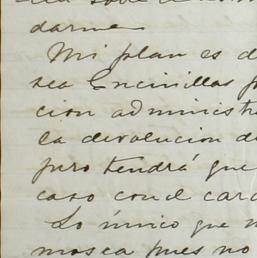 darme
Mi plan es d
sea Encinillas p
cion administr
la devolucion d
pero tendrá que
caso con el car
Lo único que n
mosca pues no